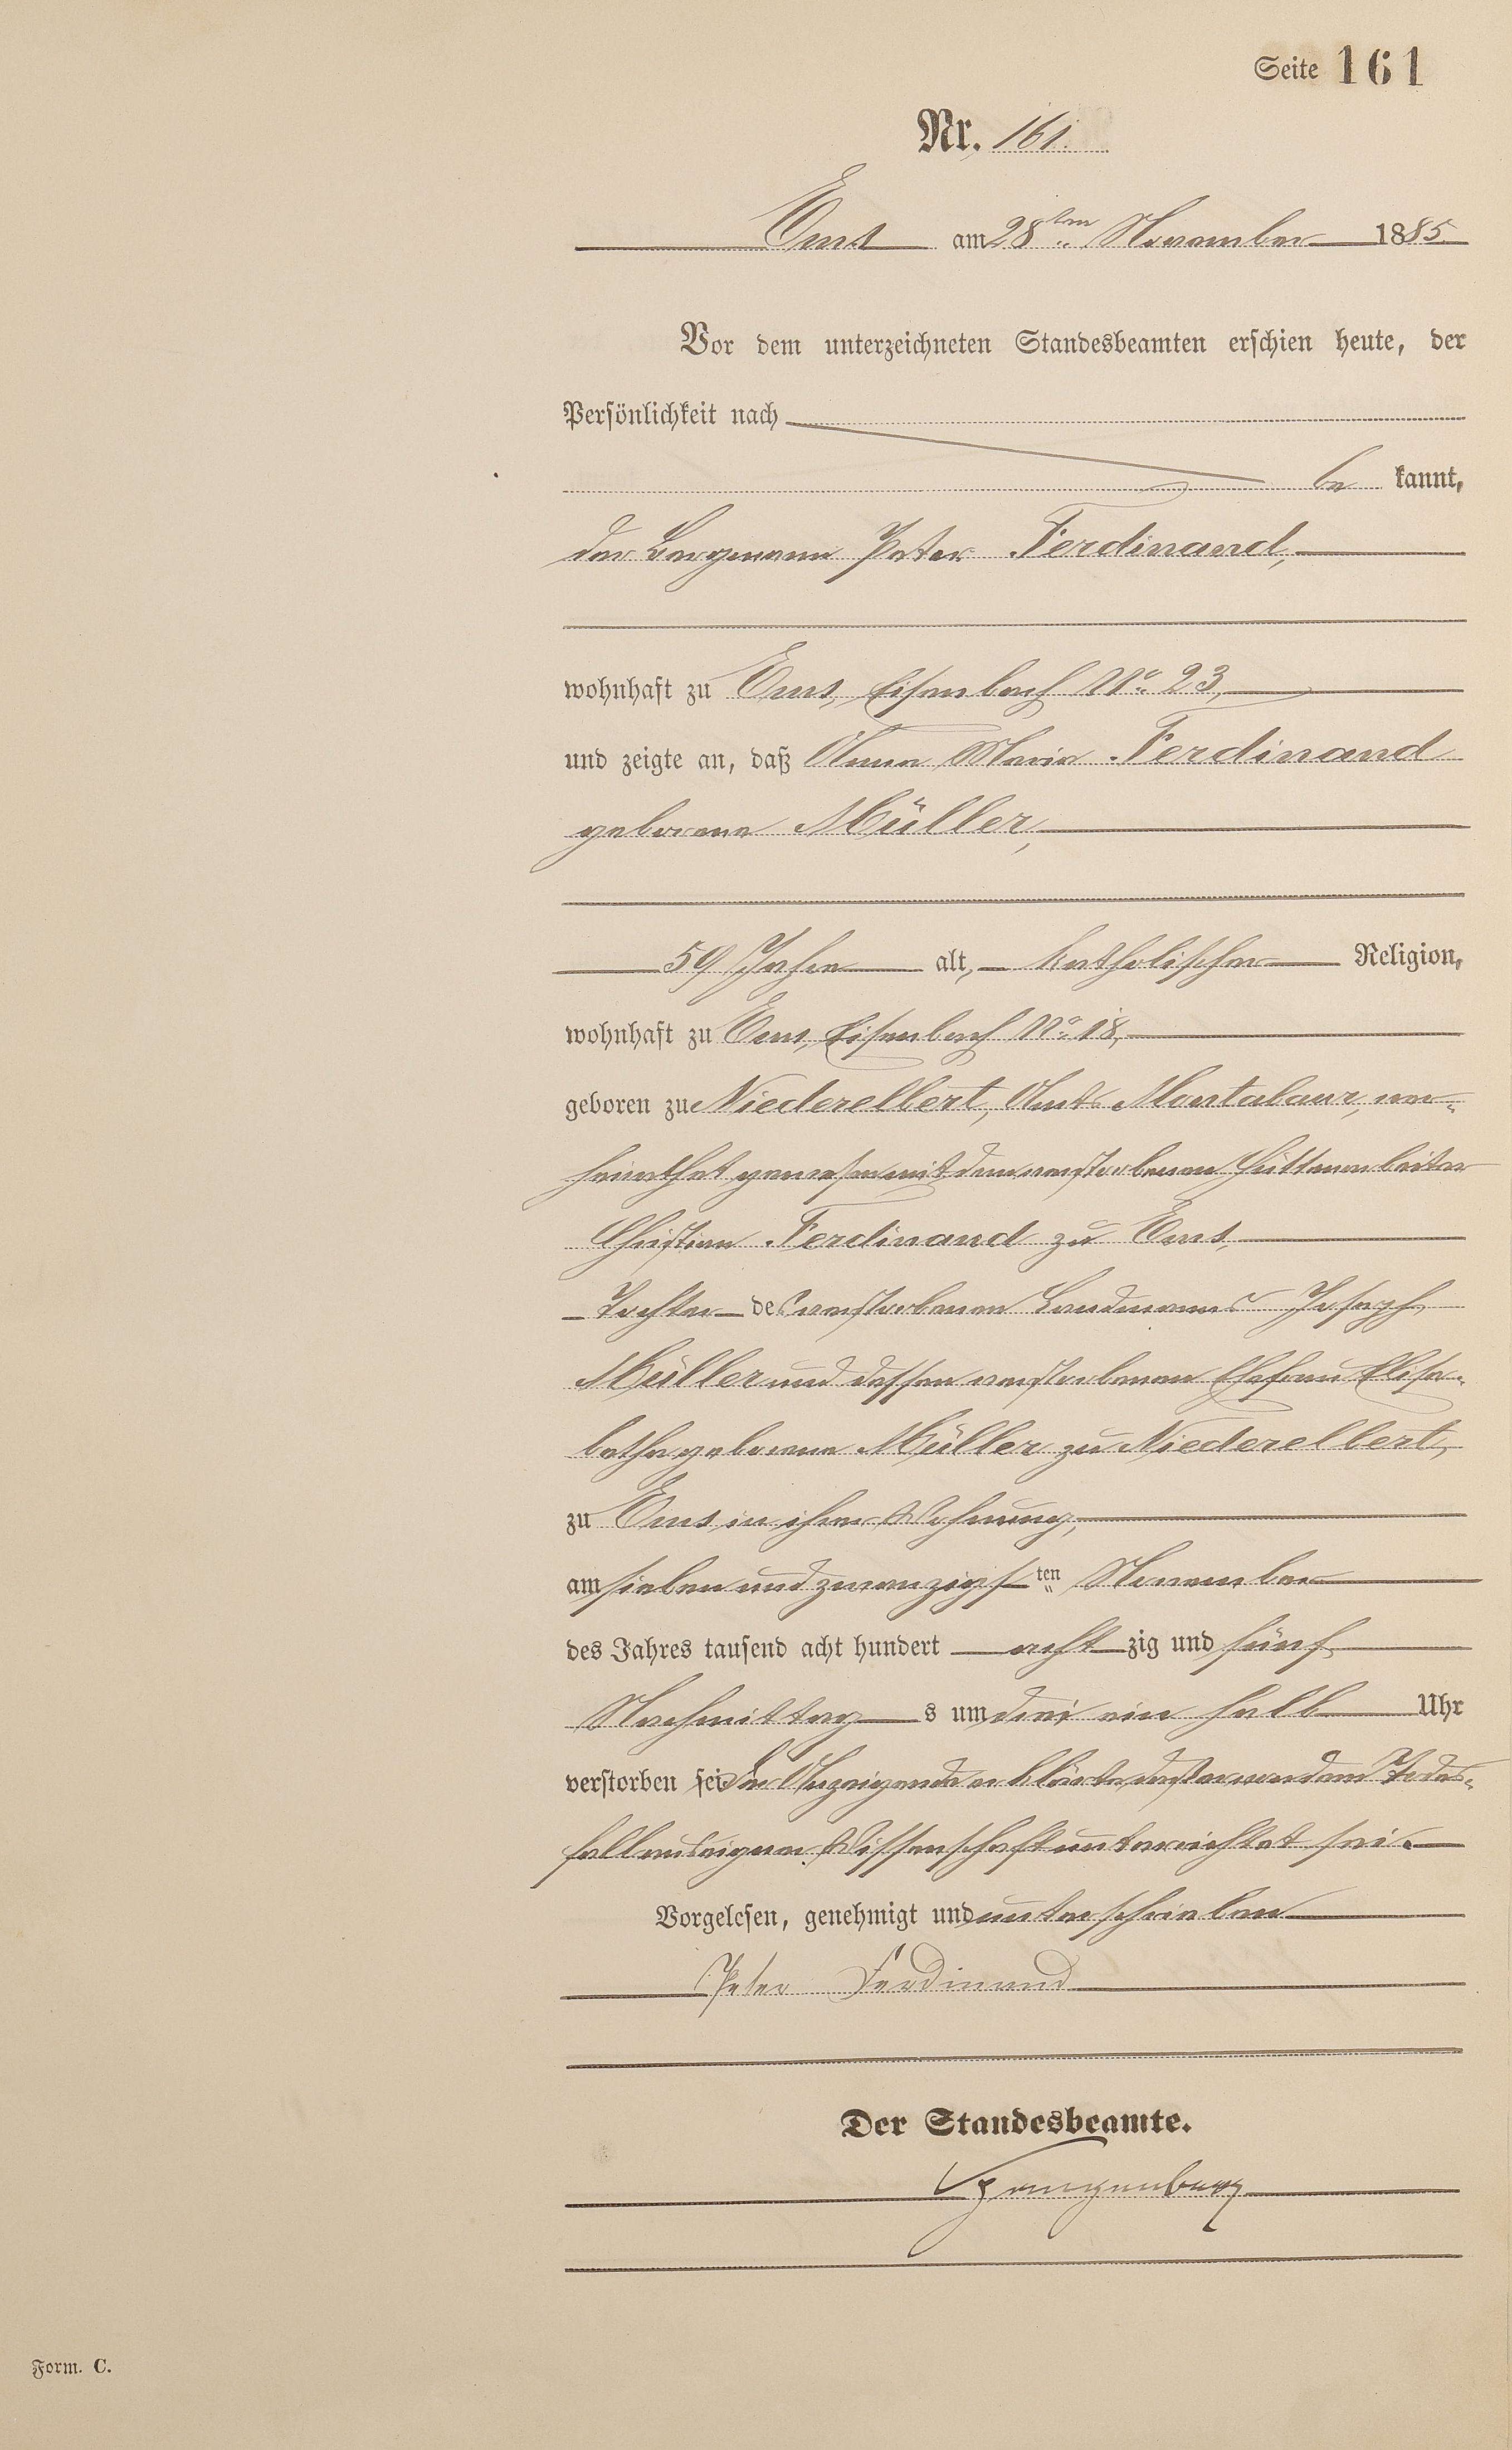 Seite 161
Nr. 161.
Ems am 28ten November 1885
Vor dem unterzeichneten Standesbeamten erschien heute, der
Persönlichkeit nach
be kannt,
der Bergmann Peter Ferdinand,
wohnhaft zu Ems, Eisenbach No. 23,
und zeigte an, daß Anna Maria Ferdinand
geborene Müller,
59 Jahre alt, katholischer Religion,
wohnhaft zu Ems, Eisenbach No. 18,
geboren zu Niederelbert, Amts Montabaur, ver-
heirathet gewesen mit dem verstorbenen Hüttenarbeiter
Christian Ferdinand zu Ems,
Tochter des verstorbenen Landmanns Joseph
Müller und dessen verstorbenen Ehefrau Elisa-
betha geborene Müller zu Niederelbert,
zu Ems in ihrer Wohnung,
am sieben und zwanzigsten November
des Jahres tausend acht hundert acht zig und fünf
Nachmittags um drei ein halb Uhr
verstorben sei. Der Anzeigende erklärte, daß er von dem Todes-
fall aus eigener Wissenschaft unterrichtet sei.
Vorgelesen, genehmigt und unterschrieben
Peter Ferdinand
Der Standesbeamte.
Form. C.